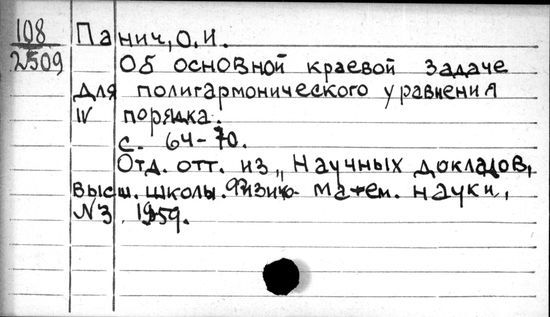 108 Панич, О.И.
2509 Об основной краевой задаче
для полигармонического уравнения
IV порядка.
с. 64-70.
Отд. отт. из „Научных докладов,
высш. школы. Физико- матем. науки,
№3, 1959.